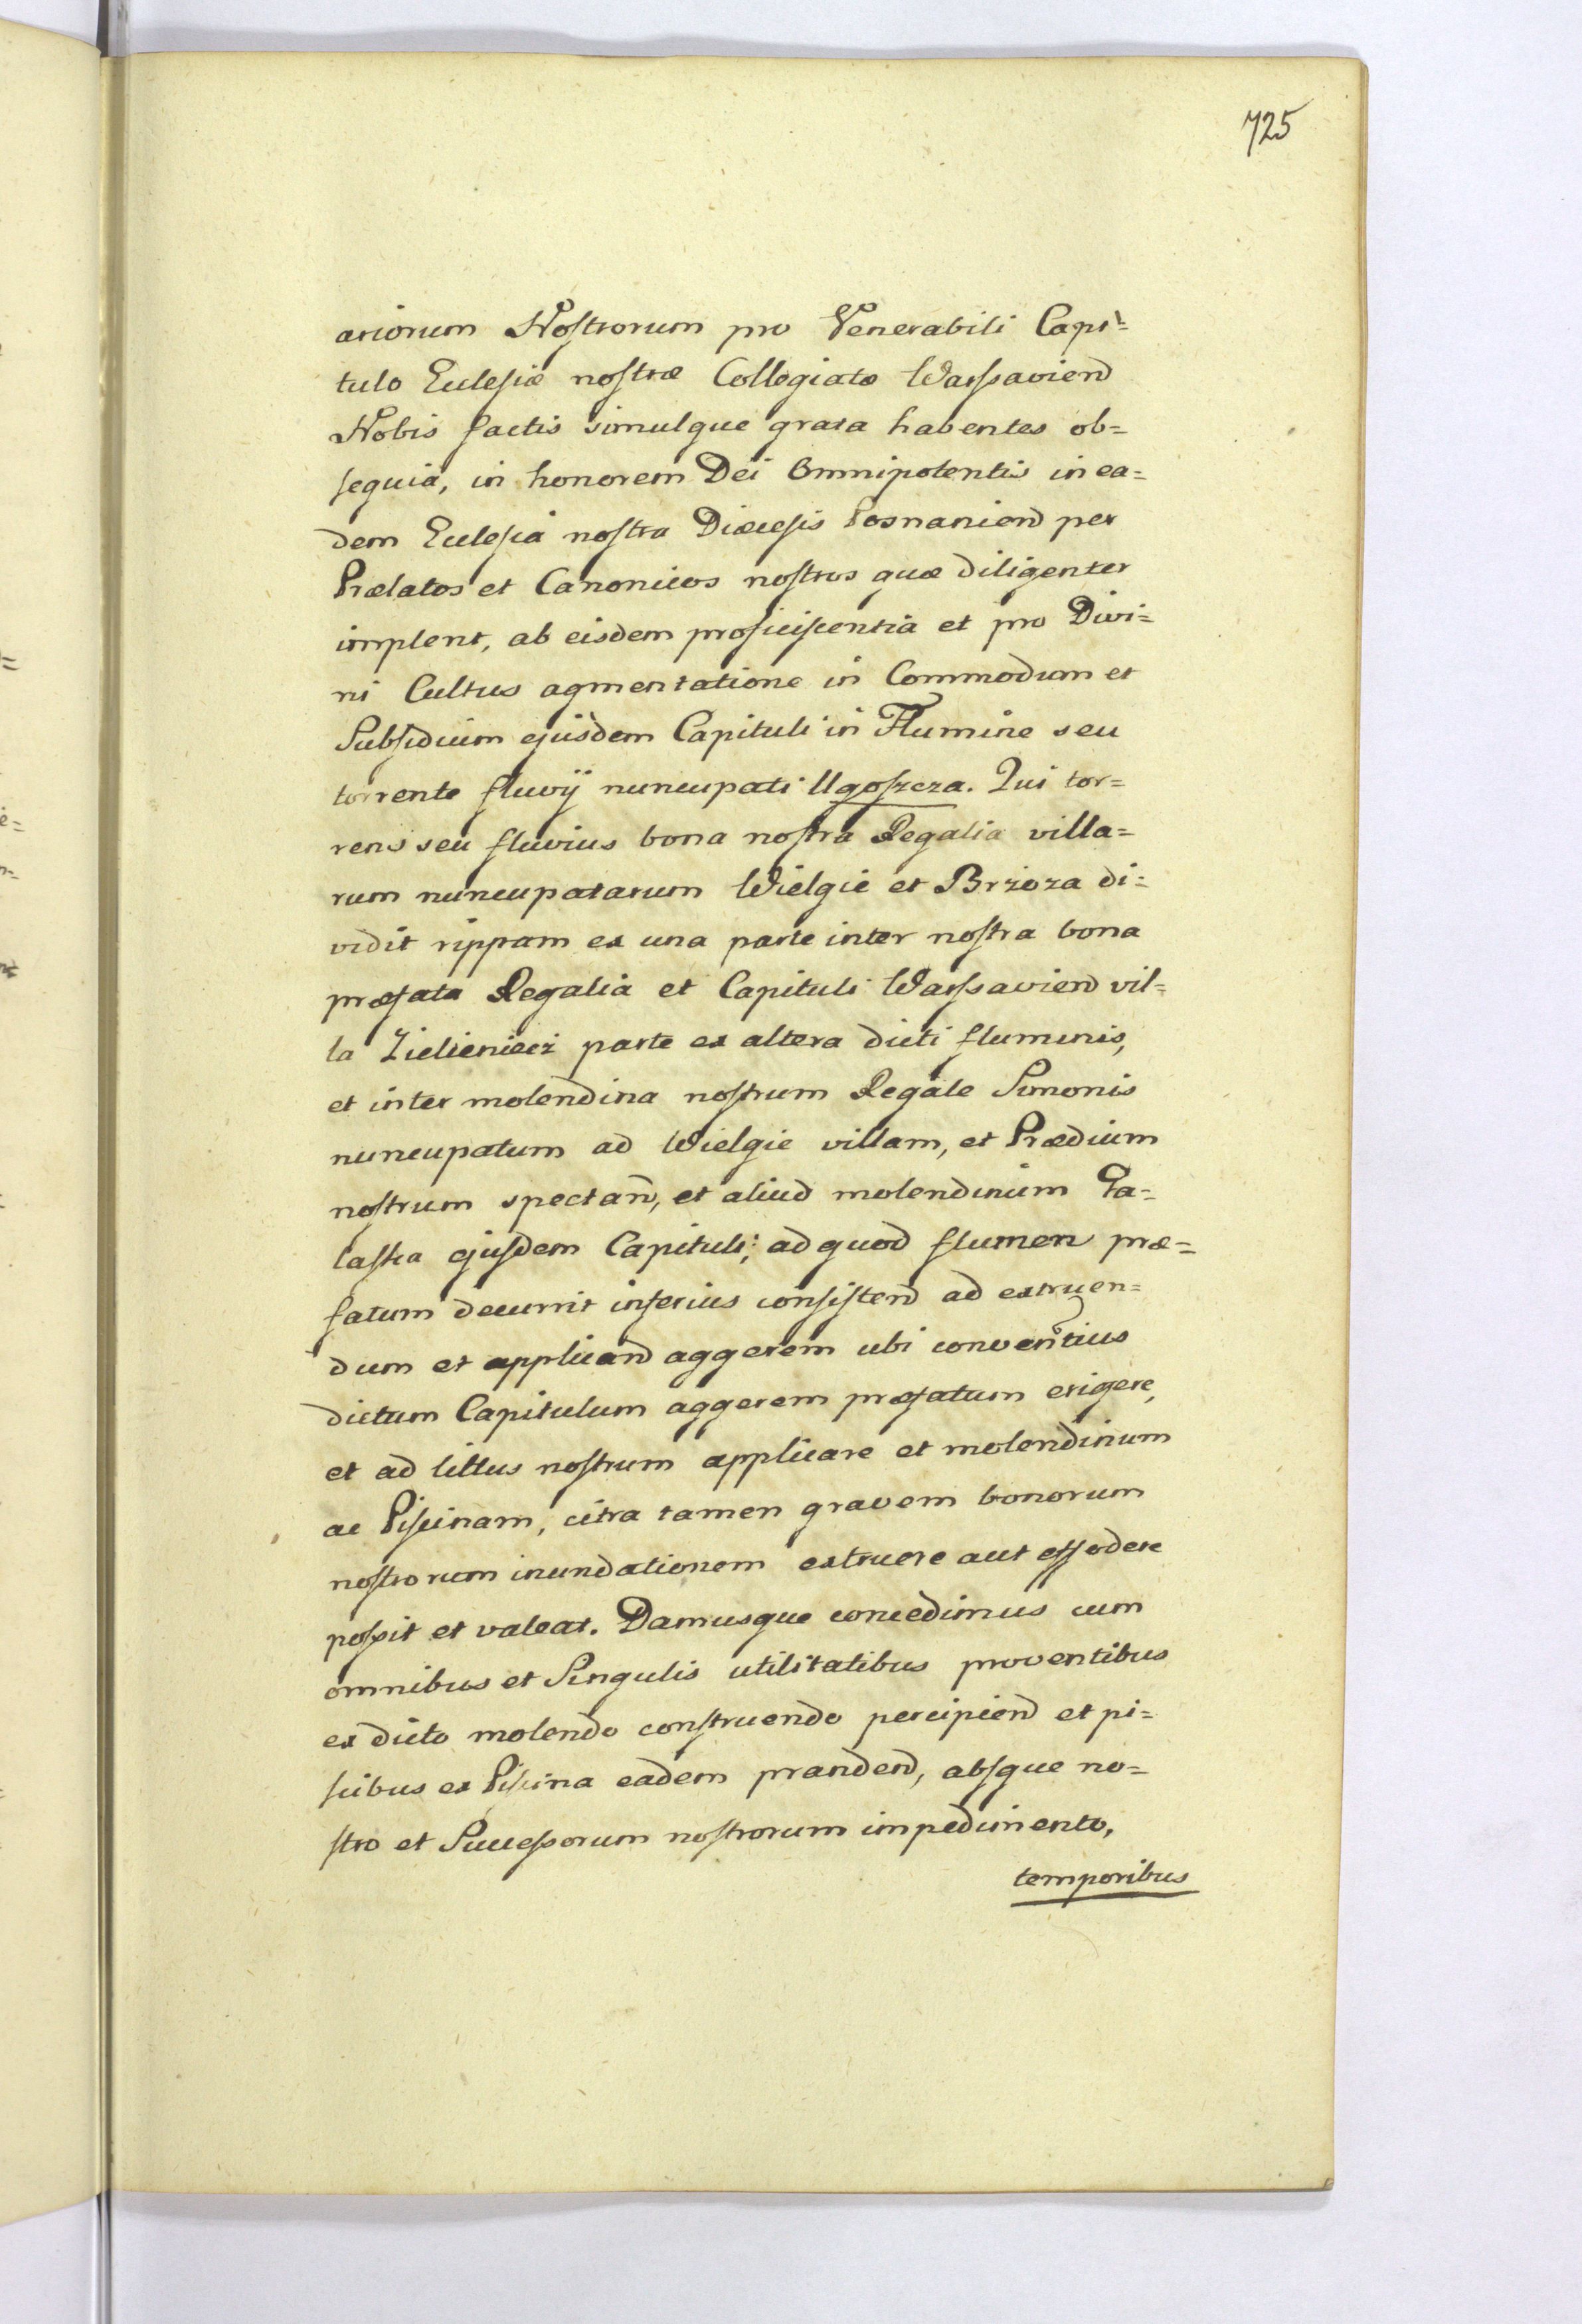 725
ariorum Nostrorum pro Venerabili Capi=
tulo Eclesiæ nostræ Collegiatæ Warssaviend
Nobis factis simulque grata habentes ob=
sequia, in honorem Dei Omnipotentis in ea=
dem Eclesia nostra Diæcesis Posnaniend per
Prælatos et Canonicos nostros quæ diligenter
implent, ab eisdem proficiscentia et pro Divi=
ni Cultus agmentatione in Commodum et
Subsidium ejusdem Capituli in Flumine seu
torrente fluvij nuncupati Ugoszcza. Qui tor=
rens seu fluvius bona nostra Regalia villa=
rum nuncupatarum Wielgie et Brzoza di=
vidit rippam ex una parte inter nostra bona
præfata Regalia et Capituli Warssaviend vil=
la Zieliencez parte ex altera dicti fluminis,
et inter molendina nostrum Regale Simonis
nuncupatum ad Wielgie villam, et Prædium
nostrum spectan, et aliud molendinum Pa=
lastra ejusdem Capituli; ad quod flumen præ=
fatum decurrit inferius consistend ad extruen=
dum et applicand aggerem ubi conventius
dictum Capitulum aggerem præfatum erigere,
et ad littus nostrum applicare et molendinum
ac Piscinam, citra tamen gravem bonorum
nostrorum inundationem extruere aut effodere
possit et valeat. Damusque concedimus cum
omnibus et Singulis utilitatibus proventibus
ex dicto molendo construendo percipiend et pi=
scibus ex Piscina eadem prandend, absque no=
stro et Successorum nostrorum impedimento,
temporibus